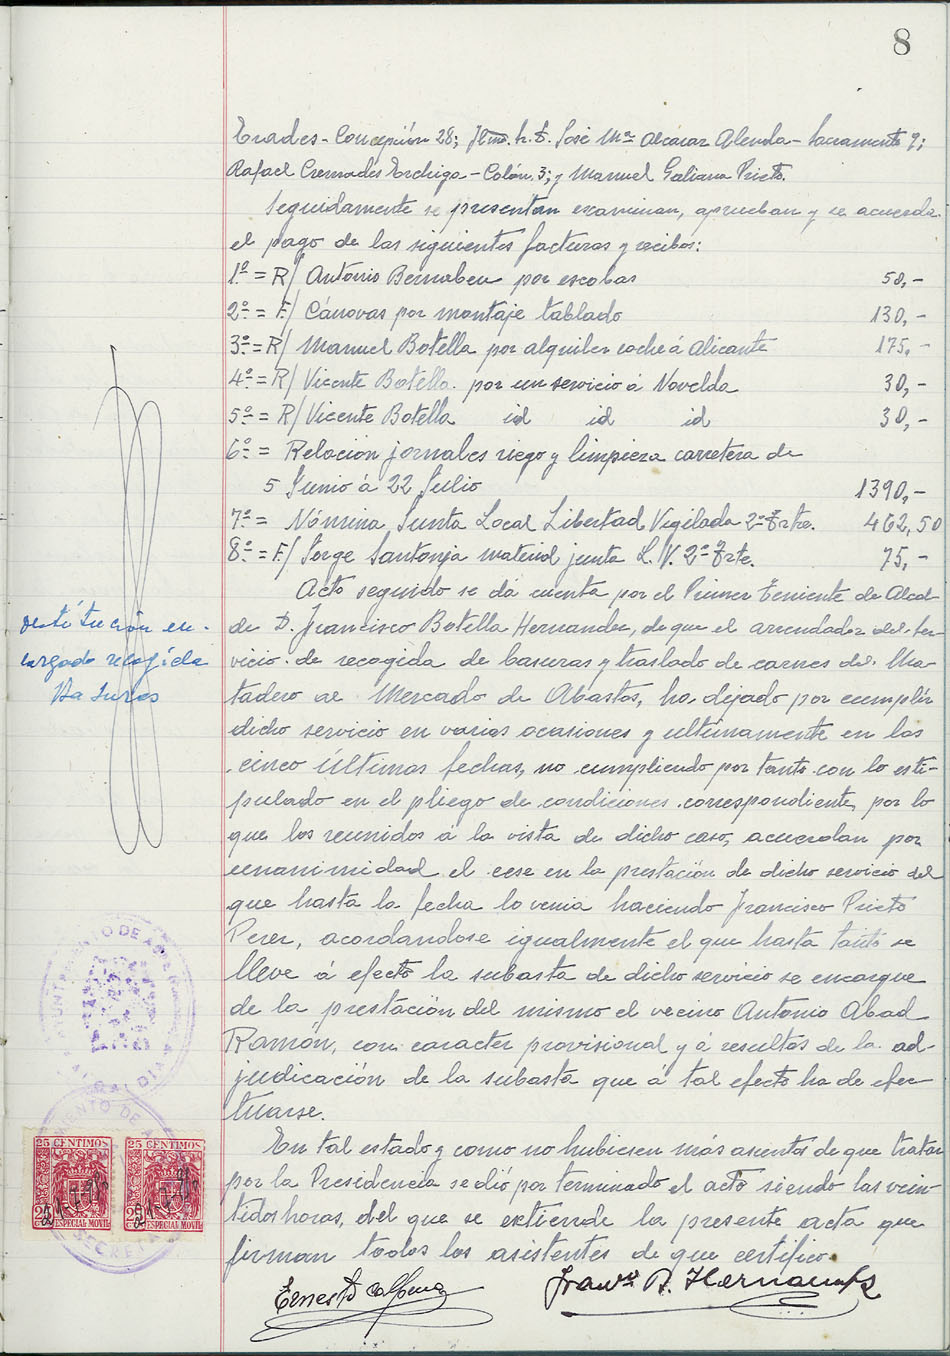 8
Erades - Concepción 28; Ilmo. Sr. D. José Mª Alcaraz Alenda - Sacramento 9;
Rafael Cremades - Colón, 3; y Manuel Galiana Prieto.
Seguidamente se presentan examinan, aprueban y se acuerda
el pago de las siguientes facturas y recibos:
1º = R/ Antonio Bernabeu por escobas 58,-
2º = F/ Cánovas por montaje tablado 130,-
3º = R/ Manuel Botella por alquiler coche á Alicante 175,-
4º = R/ Vicente Botella. por un servicio á Novelda 30,-
5º = R/ Vicente Botella id id id 30,-
6º = Relación jornales riego y limpieza carretera de
5 Junio á 22 Julio 1390,-
7º = Nómina Junta Local Libertad Vigilada 2º Trtre. 462,50
8º = F/ Jorge Santonja material junta L.V. 2º Trte. 75,-
Acto seguido se dá cuenta por el Primer Teniente de Alcal-
de D. Francisco Botella Hernandez, de que el arrendador del ser-
vicio de recogida de basuras y traslado de carnes del Ma-
tadero al Mercado de Abastos, ha dejado por cumplir
dicho servicio en varias ocasiones y ultimamente en las
cinco últimas fechas, no cumpliendo por tanto con lo esti-
pulado en el pliego de condiciones correspondiente, por lo
que los reunidos á la vista de dicho caso, acuerdan por
unanimidad el cese en la prestación de dicho servicio del
que hasta la fecha lo venia haciendo Francisco Prieto
Perez, acordandose igualmente el que hasta tanto se
lleve á efecto la subasta de dicho servicio se encargue
de la prestación del mismo el vecino Antonio Abad
Ramón, con caracter provisional y á resultas de la ad-
judicación de la subasta que á tal efecto ha de efec-
tuarse.
En tal estado y como no hubiesen más asuntos de que tratar
por la Presidencia se dió por terminado el acto siendo las vein-
tidos horas, del que se extiende la presente acta que
firman todos los asistentes de que certifico.
Ernesto Calpena
Franco B. Hernandez
Destitución en-
cargado recogida
Basuras
AYUNTAMIENTO DE
ALCALDIA
25 CENTIMOS
ESPECIAL MOVIL
25 CENTIMOS
ESPECIAL MOVIL
SECRETA